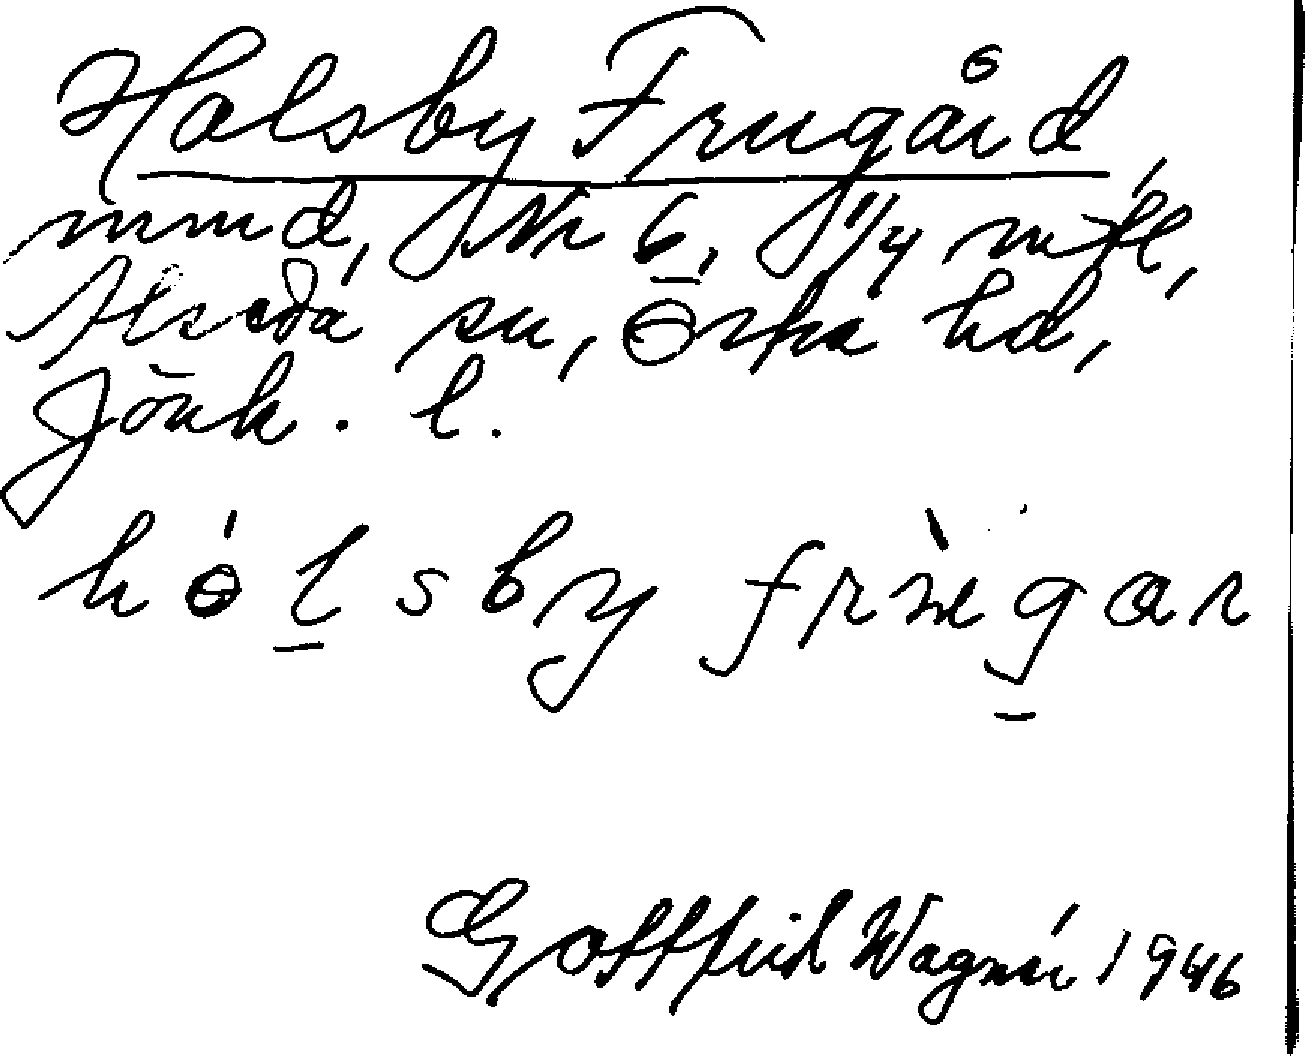 Holsby Frugård,
mmd, Nr 6, 1/4 mtl,
Alseda sn, Östra hd,
Jönk. l.
hólsby frùgar
Gottfrid Wagnér 1946